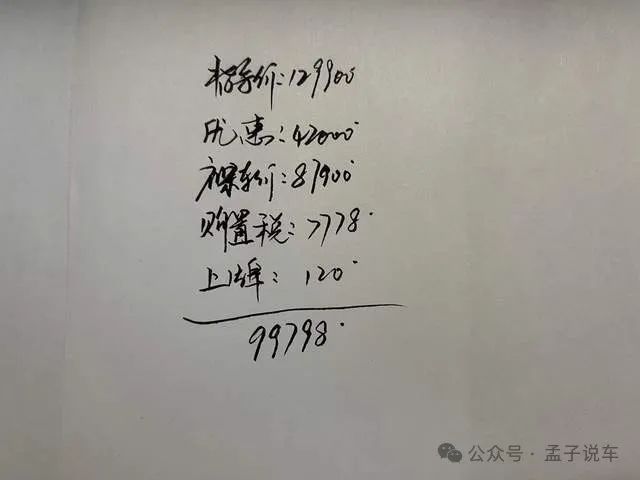 指导价:129900
优惠:42000
裸车价:87900
购置税:7778
上牌:120
99798
公众号·孟子说车